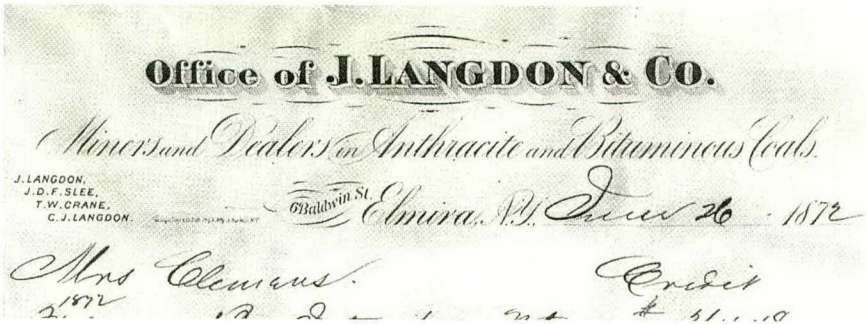 Office of J. LANGDON & CO.
Miners and Dealers in Anthracite and Bituminous Coals.
J. LANGDON,
J. D. F. SLEE,
T. W. CRANE,
C. J. LANGDON.
6 Baldwin St. Elmira, N.Y. June 26 1872
Mrs Clemens. Credit
1872